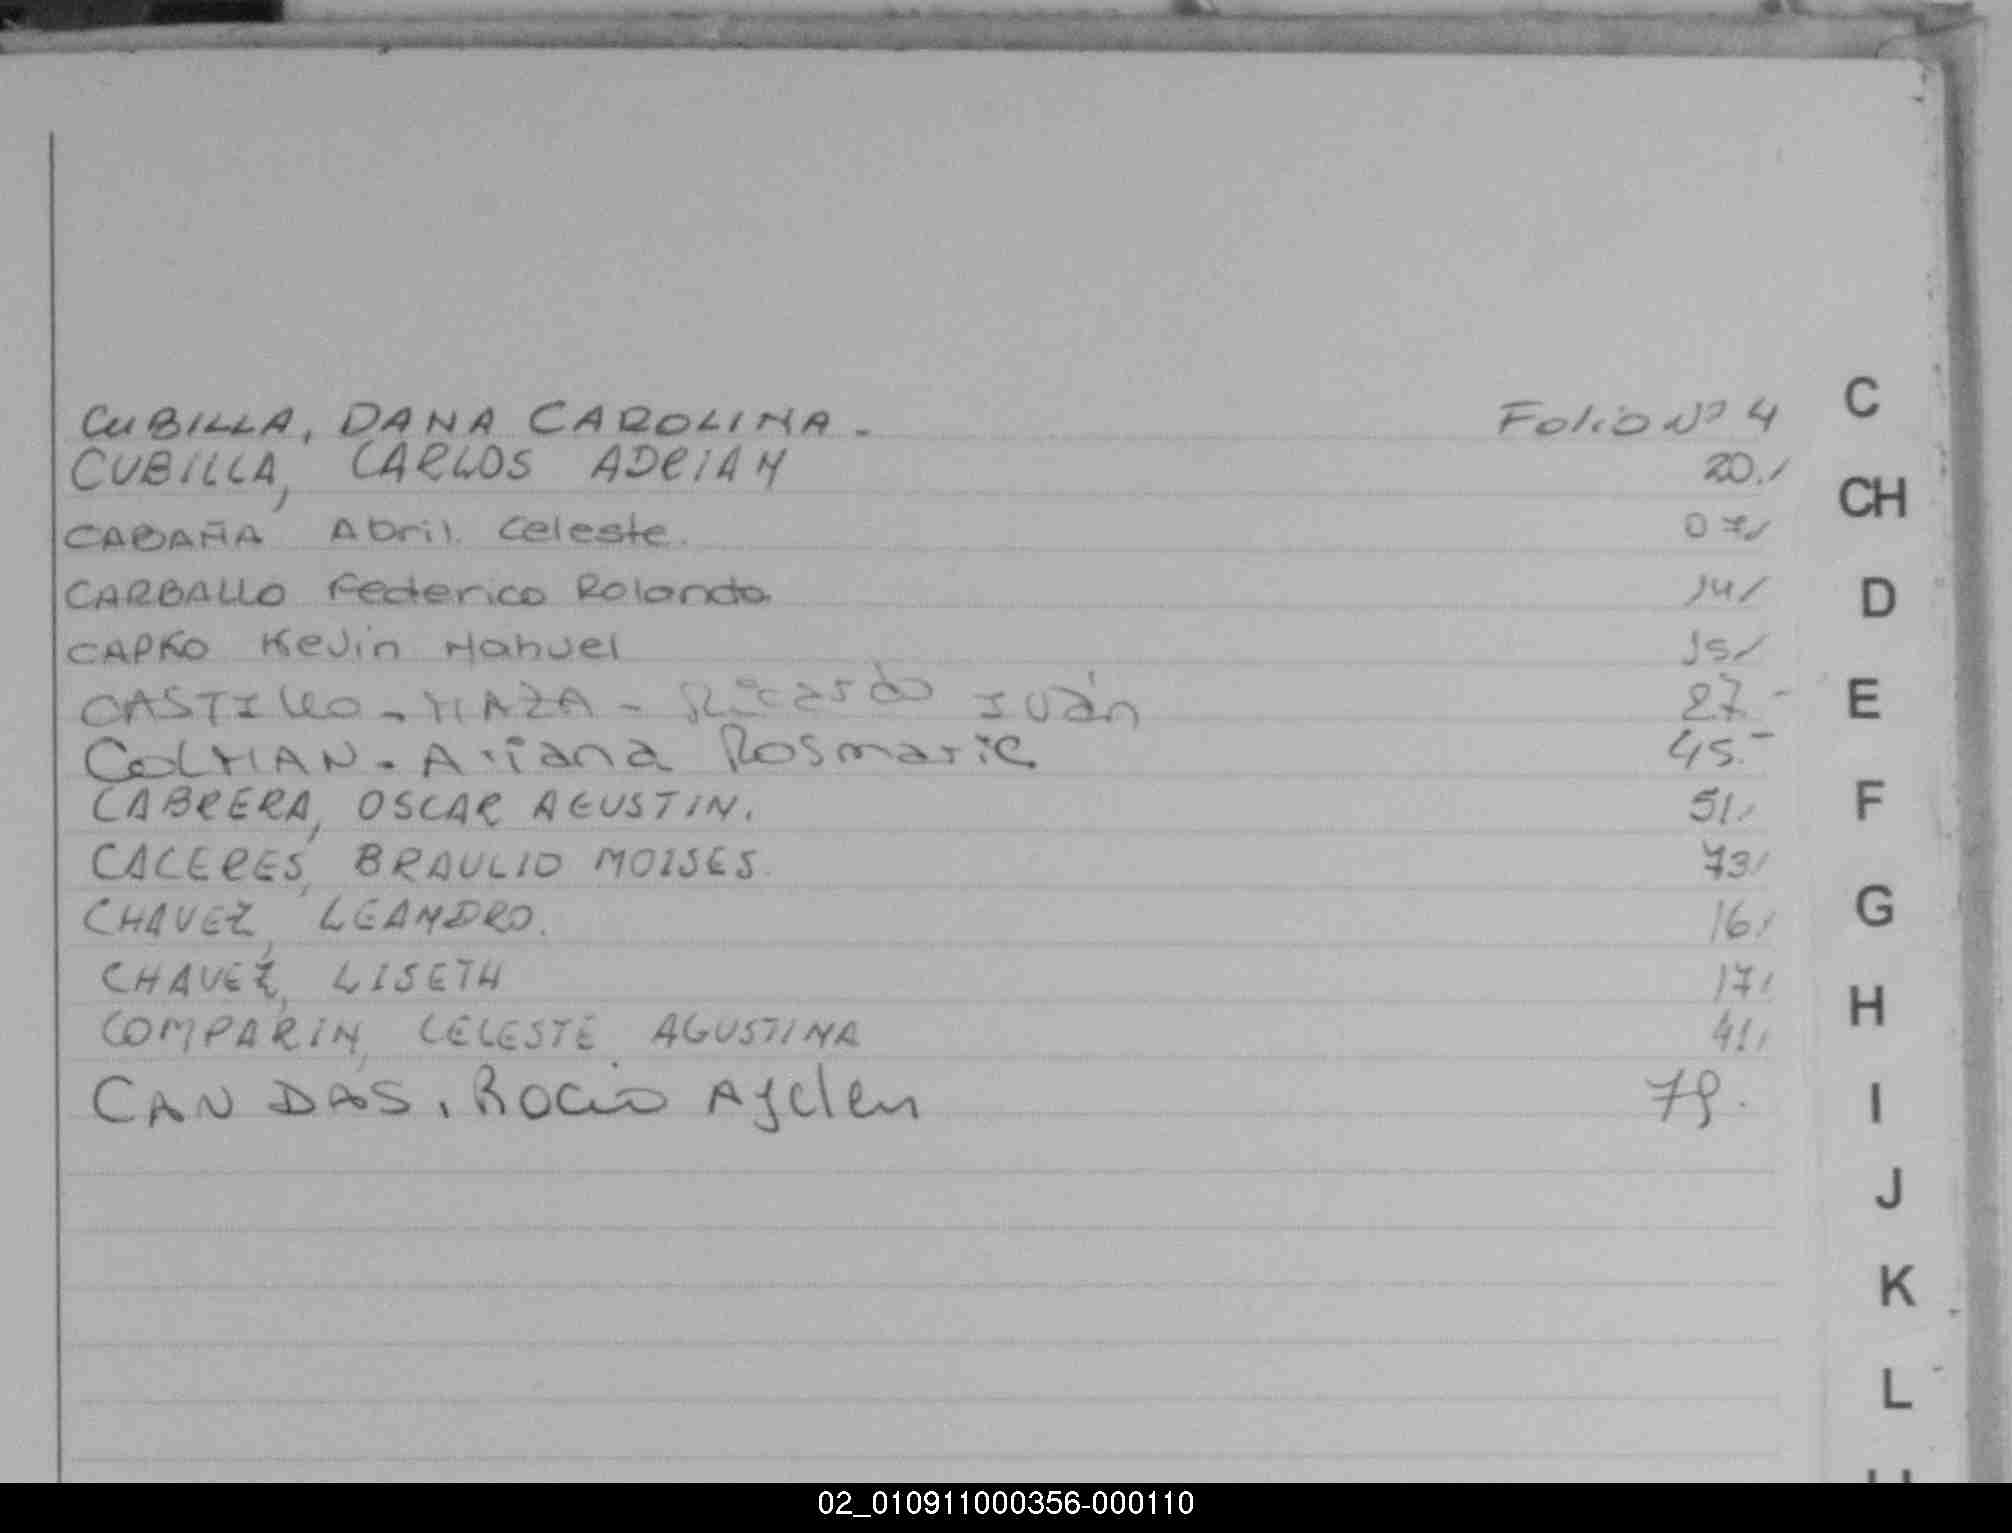 CUBILLA, DANA CAROLINA. Folio Nº 4
CUBILLA, CARLOS ADRIAN 20./
CABAÑA Abril Celeste. 07/
CARBALLO Federico Rolando. 14/
CAPKO Kevin Nahuel 15/
CASTILLO - MAZA - Ricardo Iván 27.-
COLMAN. Ariana Rosmarie 45.-
CABRERA, OSCAR AGUSTIN. 51/
CACERES, BRAULIO MOISES. 73/
CHAVEZ, LEANDRO. 16/
CHAVEZ, LISETH 17/
COMPARIN, CELESTE AGUSTINA 41/
CANDAS, Rocio Ayelen 79.
C
CH
D
E
F
G
H
I
J
K
L
02_010911000356-000110